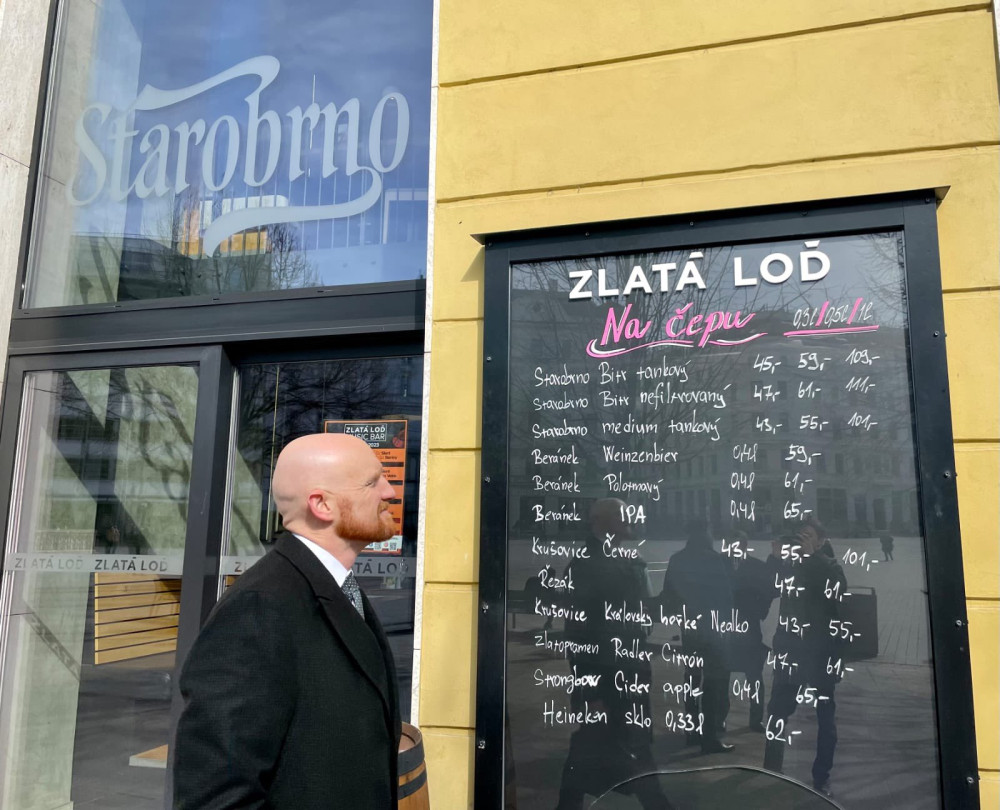 Starobrno
ZLATÁ LOĎ
Na čepu 0,3l/0,5l/1l
Starobrno Bitr tankový 45,- 59,- 109,-
Starobrno Bitr nefiltrovaný 47,- 61,- 111,-
Starobrno medium tankový 43,- 55,- 101,-
Beránek Weinzenbier 0,4l 59,-
Beránek Polotmavý 0,4l 61,-
Beránek IPA 0,4l 65,-
Krušovice Černé 43,- 55,- 101,-
Řezák 47,- 61,-
Krušovice Královsky hořké Nealko 43,- 55,-
Zlatopramen Radler Citrón 47,- 61,-
Strongbow Cider apple 0,4l 65,-
Heineken sklo 0,33l 62,-
ZLATÁ LOĎ
MUSIC BAR
ZLATÁ LOĎ ZLATÁ LOĎ
ZLATÁ LOĎ